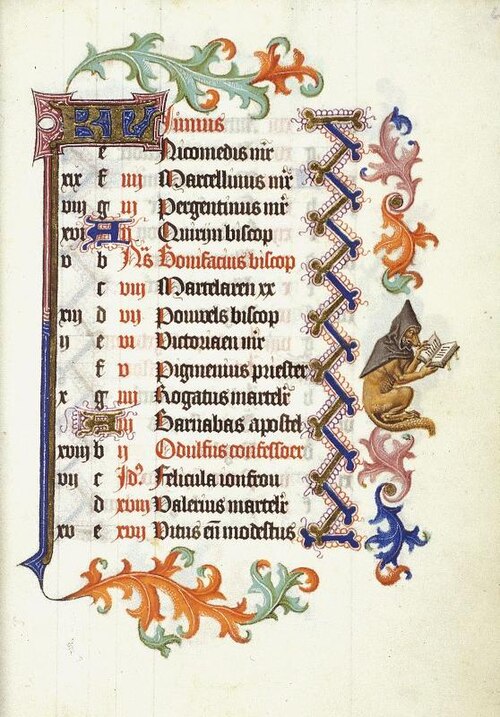 KL Junius
e Nicomedis mr
xix f iiij Marcellinus mr
viij g iij Pergentinus mr
xvi A ij Quirin biscop
v b Ns Bonifacius biscop
c viij Martelaren xx
xiij d vij Pouwels biscop
ij e vi Victoriaen mr
f v Pigmenius priester
x g iiij Rogatus martelr
A iij Barnabas apostel
xviij b ij Odulfus confessoer
vij c Id9 Felicula ionfrou
d xviij Valerius martelr
xv e xvij Vitus eñ modestus